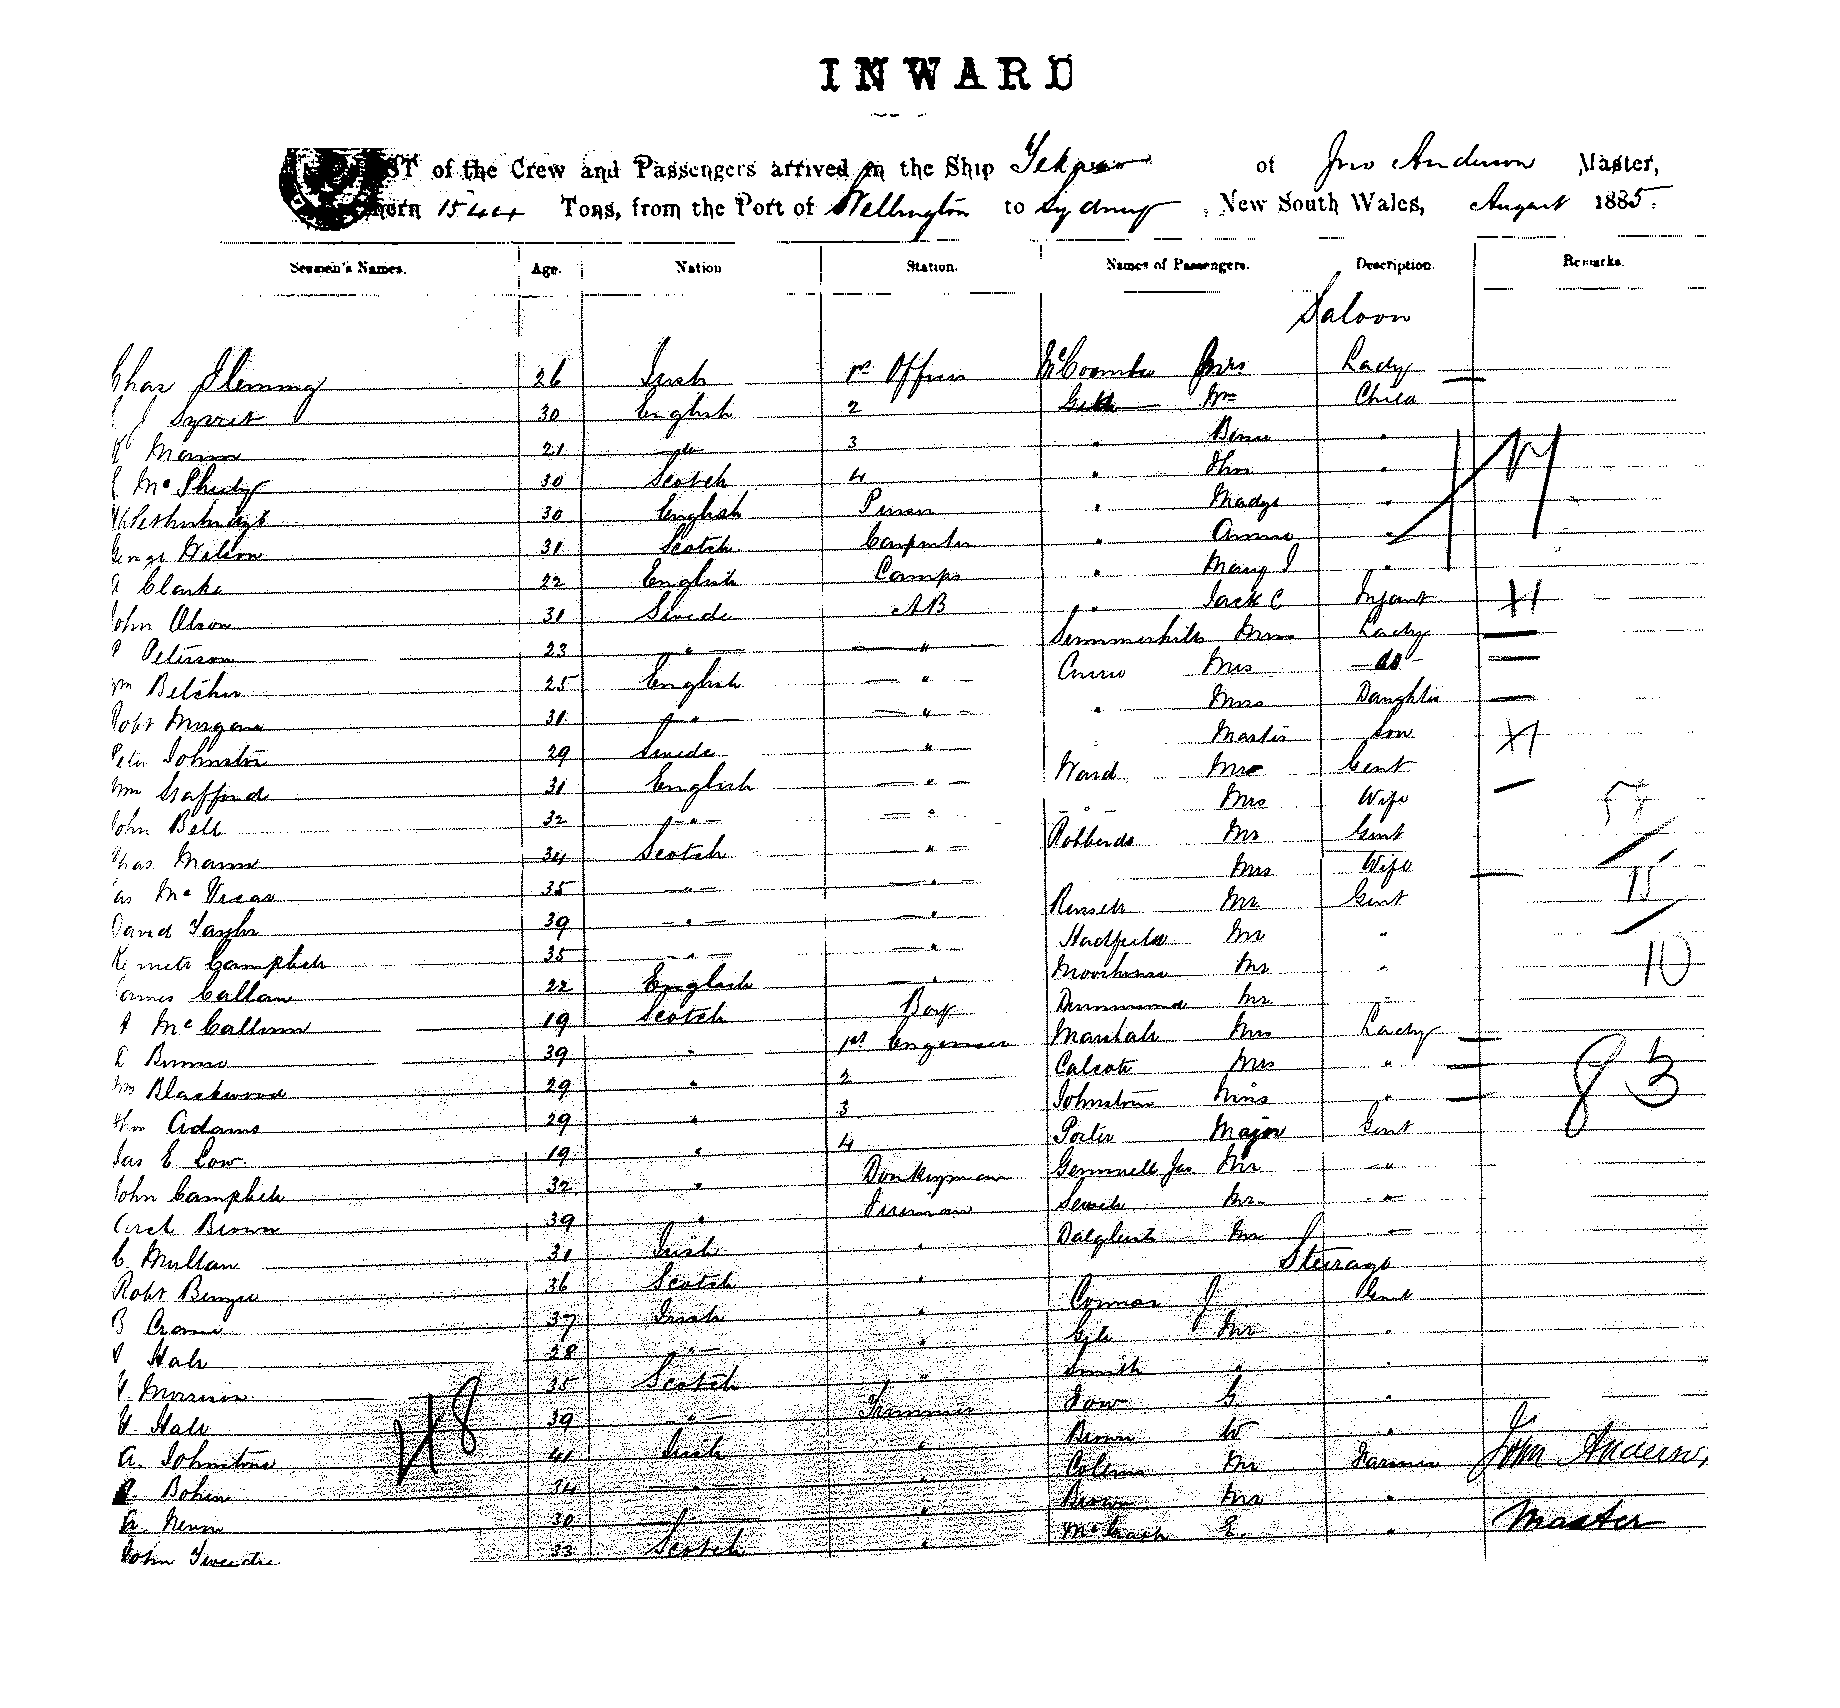 INWARD
ST of the Crew and Passengers arrived in the Ship Tekapo of Jno Anderson Master,
1544 Tons, from the Port of Wellington to Sydney, New South Wales, August 1885.
Seamen's Names. Age. Nation Station. Names of Passengers. Description. Remarks.
Saloon
Chas Fleming 26 Irish 1st Officer McCoombe Mrs Lady
Syvret 30 English 2 Wm Child
Mann 21 do 3 " "
McPhedy 30 Scotch 4 " Jhn "
30 English Purser " Madge "
George Wilson 31 Scotch Carpenter " Annie "
Clarke 22 English Lamps " Mary I "
John Olson 31 Swede AB " Jack C Infant
Peterson 23 " " Summerhills Lady
Wm Belcher 25 English " Mrs do
Robt Morgan 31 " " " Miss Daughter
Peter Johnston 29 Swede " Master Son
Wm Stafford 31 English " Ward Mr Gent
John Bell 32 " " " Mrs Wife
Chas Mann 34 Scotch " Robberds Mr Gent
Jas McVicar 35 " " Mrs Wife
David Taylor 39 " " Mr Gent
Kenneth Campbell 35 " " Hadfield Mr "
James Callan 22 English " Moorhouse Mr "
A McCallum 19 Scotch Boy Drummond Mr "
39 " 1st Engineer Marshall Mrs Lady
Wm Blackwood 29 " 2 Calcott Mrs "
Wm Adams 29 " 3 Johnston Miss "
Jas E Low 19 " 4 Porter Major Gent
John Campbell 32 " Donkeyman Gemmell Jas Mr "
Arch Brown 39 " Fireman Mr "
C Mullan 31 Irish " Dalgleish Mr "
Steerage
Robt 36 Scotch " Connor J Gent
B 37 Irish " Mr "
Hall 28 " " Smith " "
Morrison 35 Scotch " G "
Hall 39 " Trimmer Brown W "
A. Johnstone 41 Irish " Coleman Mr Farmer
34 " " Brown Mr "
A. 30 " " E. "
John Tweedie 33 Scotch "
48
17
11
10
83
John Anderson,
Master